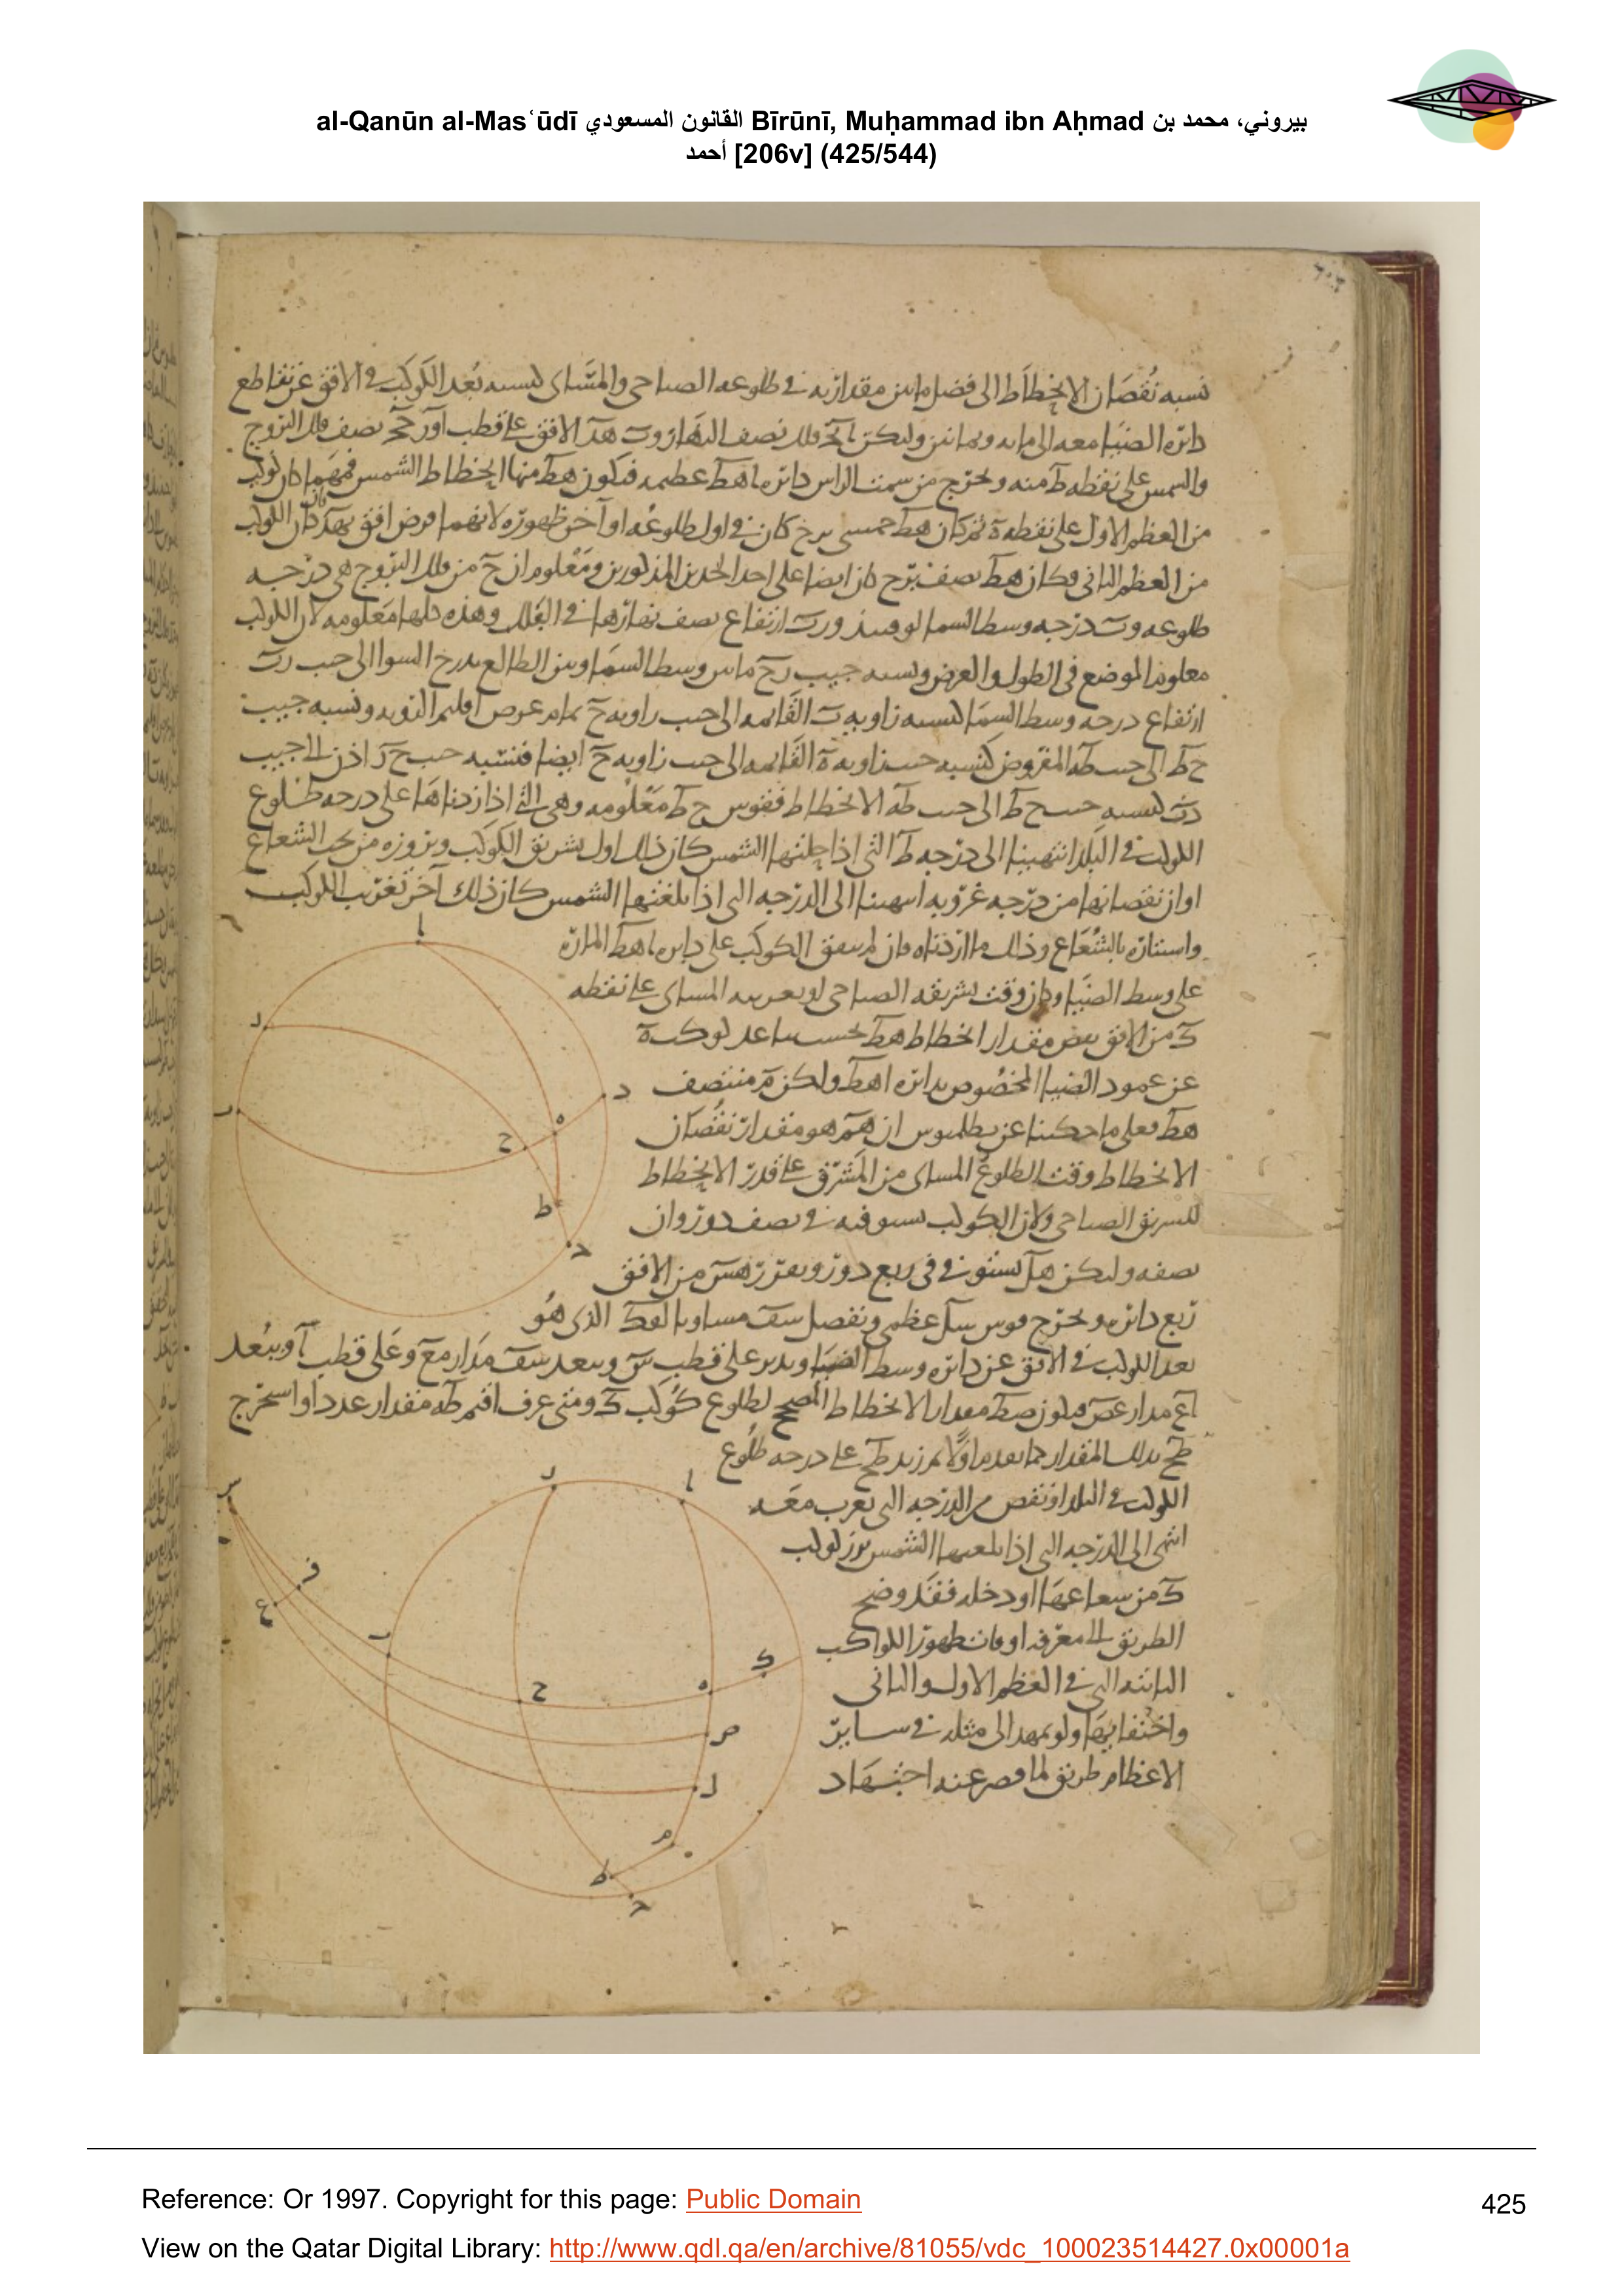 al-Qanūn al-Masʿūdī القانون المسعودي Bīrūnī, Muḥammad ibn Aḥmad بيروني، محمد بن
أحمد [206v] (425/544)
نسبه نقصان الانخطاط الى فضل ما بين مقداريه في طلوعه الصباحى والمسائى كنسبه بعد الكوكب في الافق عن تقاطع
دائره الضيا معه الى مايه وثمانين وليكن ا ب ج فلك نصف النهار و ب ه د الافق على قطب ا و ر ح ج نصف فلك البروج
والشمس على نقطه ط منه ونخرج من سمت الراس دائره ا ه ط عظيمه فيكون ه ط منها انخطاط الشمس فمهما كان كوكب
من العظم الاول على نقطه ه ثم كان ه ط خمسى برج كان في اول طلوعه او آخر ظهوره لانهما فرض افق ب ه د وان كان الكوكب
من العظم الثانى وكان ه ط نصف برج كان ايضا على احد الحدين المذكورين ومعلوم ان ح من فلك البروج هى درجه
طلوعه و ر درجه وسط السما لوقتئذ و ر ب ارتفاع نصف نهارها في الفلك وهذه كلها معلومه لان الكوكب
معلوم الموضع في الطول والعرض ونسبه جيب ر ح ما بين وسط السما وبين الطالع بدرج السوا الى جيب ر ب
ارتفاع درجه وسط السما كنسبه زاويه ب القائمه الى جيب زاويه ح تمام عرض اقليم الرويه ونسبه جيب
ح ط الى جيب ط ه المفروض كنسبه جيب زاويه ه القائمه الى جيب زاويه ح ايضا فنسبه جيب ح ر اذن الى جيب
ر ب كنسبه جيب ح ط الى جيب ط ه الانخطاط فقوس ح ط معلومه وهى التى اذا زدناها على درجه طلوع
الكوكب في البلد انتهينا الى درجه ط التى اذا حلتها الشمس كان ذلك اول تشريق الكوكب وبروزه من تحت الشعاع
او ان نقصناها من درجه غروبه انتهينا الى الدرجه التى اذا بلغتها الشمس كان ذلك آخر تغريب الكوكب
واستتاره بالشعاع وذلك ما اردناه فان لم يتفق الكوكب على دائره ا ه ط الماره
على وسط الضيا وكان وقت تشريقه الصباحى او تغريبه المسائى على نقطه
ك من الافق نقص مقدار انخطاط ه ط بحسب تباعد كوكب ه
عن عمود الضيا المخصوص بدائره ا ه ط وليكن م منتصف
ه ط فعلى ما حكينا عن بطلميوس ان ه م هو مقدار نقصان
الانخطاط وقت الطلوع المسائى من المشرق على قدر الانخطاط
للتشريق الصباحى ولان الكوكب يستوفيه في نصف دور وان
نصفه وليكن ه ل يستوفى في ربع دور ونفرز ه س من الافق
ربع دائره ونخرج قوس س ل عظمى ونفصل س ف مساويا ل ه ك الذى هو
بعد الكوكب في الافق عن دائره وسط الضيا وندير على قطب س وببعد س ف مدار ف ع وعلى قطب ا وببعد
ا ع مدار ع ص فيكون ص ط مقدار الانخطاط المصحح لطلوع كوكب ك ومتى عرف اقيم ط ه مقدار عدد او استخرج
ط ح بذلك المقدار كما تقدم اولا ثم زيد ط ح على درجه طلوع
الكوكب في البلد او نقص من الدرجه التى يغرب معه
انتهى الى الدرجه التى اذا بلغتها الشمس برز كوكب
ك من شعاعها او دخله فقد وضح
الطريق الى معرفه اوقات ظهور الكواكب
الثابته التى في العظم الاول والثانى
واختفائها ولو تمهد الى مثله في سائر
الاعظام طريق لما قصر عنه اجتهاد
Reference: Or 1997. Copyright for this page: Public Domain
425
View on the Qatar Digital Library: http://www.qdl.qa/en/archive/81055/vdc_100023514427.0x00001a